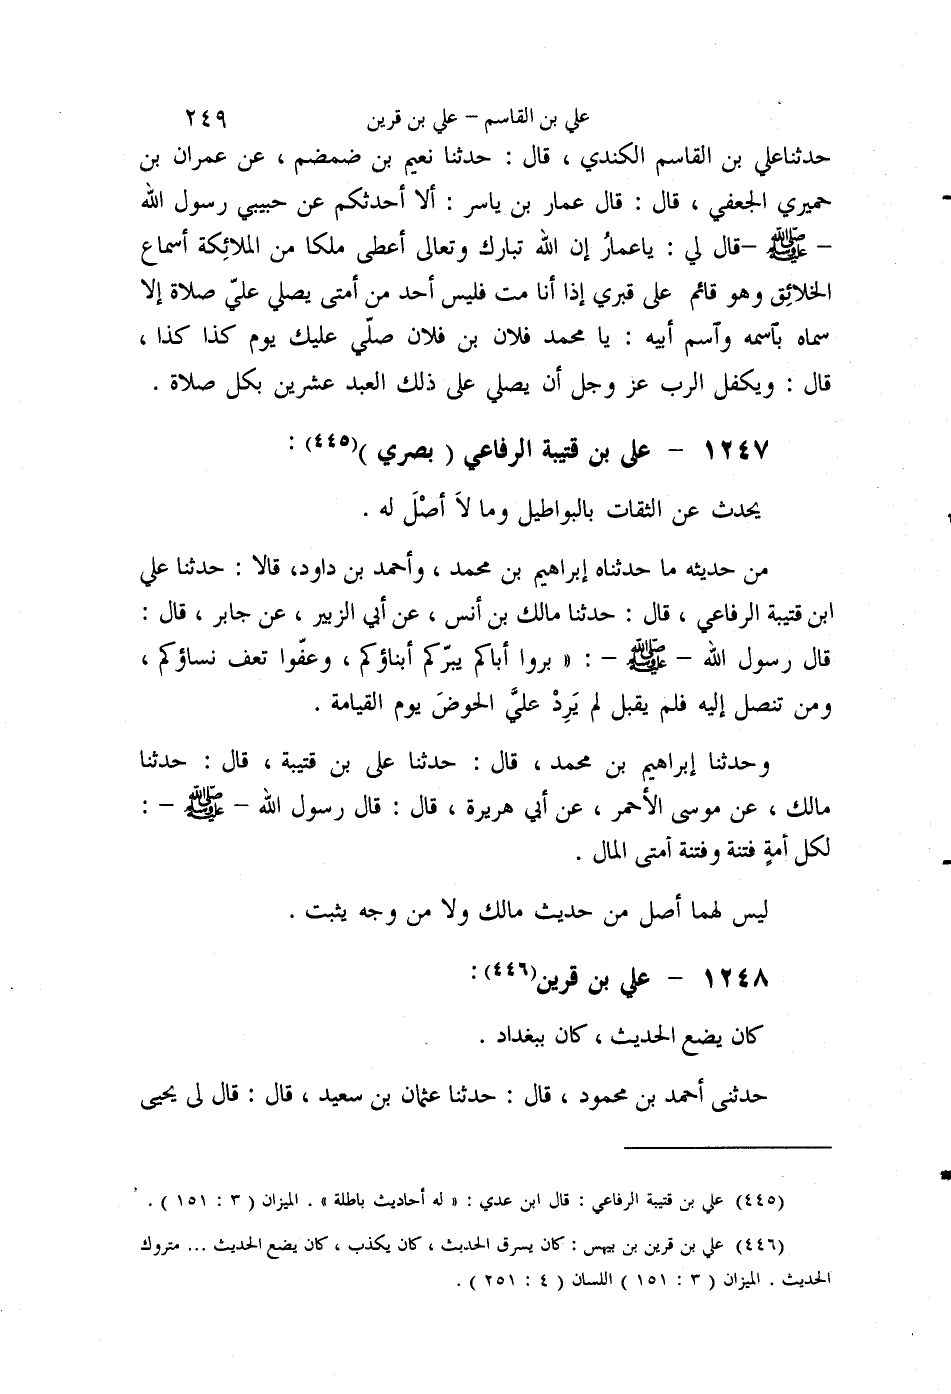 علي بن القاسم - علي بن قرين ٢٤٩
حدثناعلي بن القاسم الكندي ، قال : حدثنا نعيم بن ضمضم ، عن عمران بن
حميري الجعفي ، قال : قال عمار بن ياسر : ألا أحدثكم عن حبيبي رسول الله
- ﷺ -قال لي : ياعمارُ إن الله تبارك وتعالى أعطى ملكا من الملائكة أسماع
الخلائق وهو قائم على قبري إذا أنا مت فليس أحد من أمتى يصلي عليّ صلاة إلا
سماه بآسمه وآسم أبيه : يا محمد فلان بن فلان صلّي عليك يوم كذا كذا ،
قال : ويكفل الرب عز وجل أن يصلي على ذلك العبد عشرين بكل صلاة .
١٢٤٧ - على بن قتيبة الرفاعي ( بصري )(٤٤٥) :
يحدث عن الثقات بالبواطيل وما لاَ أصْلَ له .
من حديثه ما حدثناه إبراهيم بن محمد ، وأحمد بن داود، قالا : حدثنا علي
ابن قتيبة الرفاعي ، قال : حدثنا مالك بن أنس ، عن أبي الزبير ، عن جابر ، قال :
قال رسول الله - ﷺ - : « بروا أباكم يبرّكم أبناؤكم ، وعفّوا تعف نساؤكم ،
ومن تنصل إليه فلم يقبل لم يَرِدْ عليَّ الحوضَ يوم القيامة .
وحدثنا إبراهيم بن محمد ، قال : حدثنا على بن قتيبة ، قال : حدثنا
مالك ، عن موسى الأحمر ، عن أبي هريرة ، قال : قال رسول الله - ﷺ - :
لكل أمةٍ فتنة وفتنة أمتى المال .
ليس لهما أصل من حديث مالك ولا من وجه يثبت .
١٢٤٨ - علي بن قرين(٤٤٦) :
كان يضع الحديث ، كان ببغداد .
حدثنى أحمد بن محمود ، قال : حدثنا عثمان بن سعيد ، قال : قال لى يحيى
(٤٤٥) علي بن قتيبة الرفاعي : قال ابن عدي : « له أحاديث باطلة » . الميزان ( ٣ : ١٥١ ) .
(٤٤٦) علي بن قرين بن بيهس : كان يسرق الحديث ، كان يكذب ، كان يضع الحديث ... متروك
الحديث . الميزان ( ٣ : ١٥١ ) اللسان ( ٤ : ٢٥١ ) .